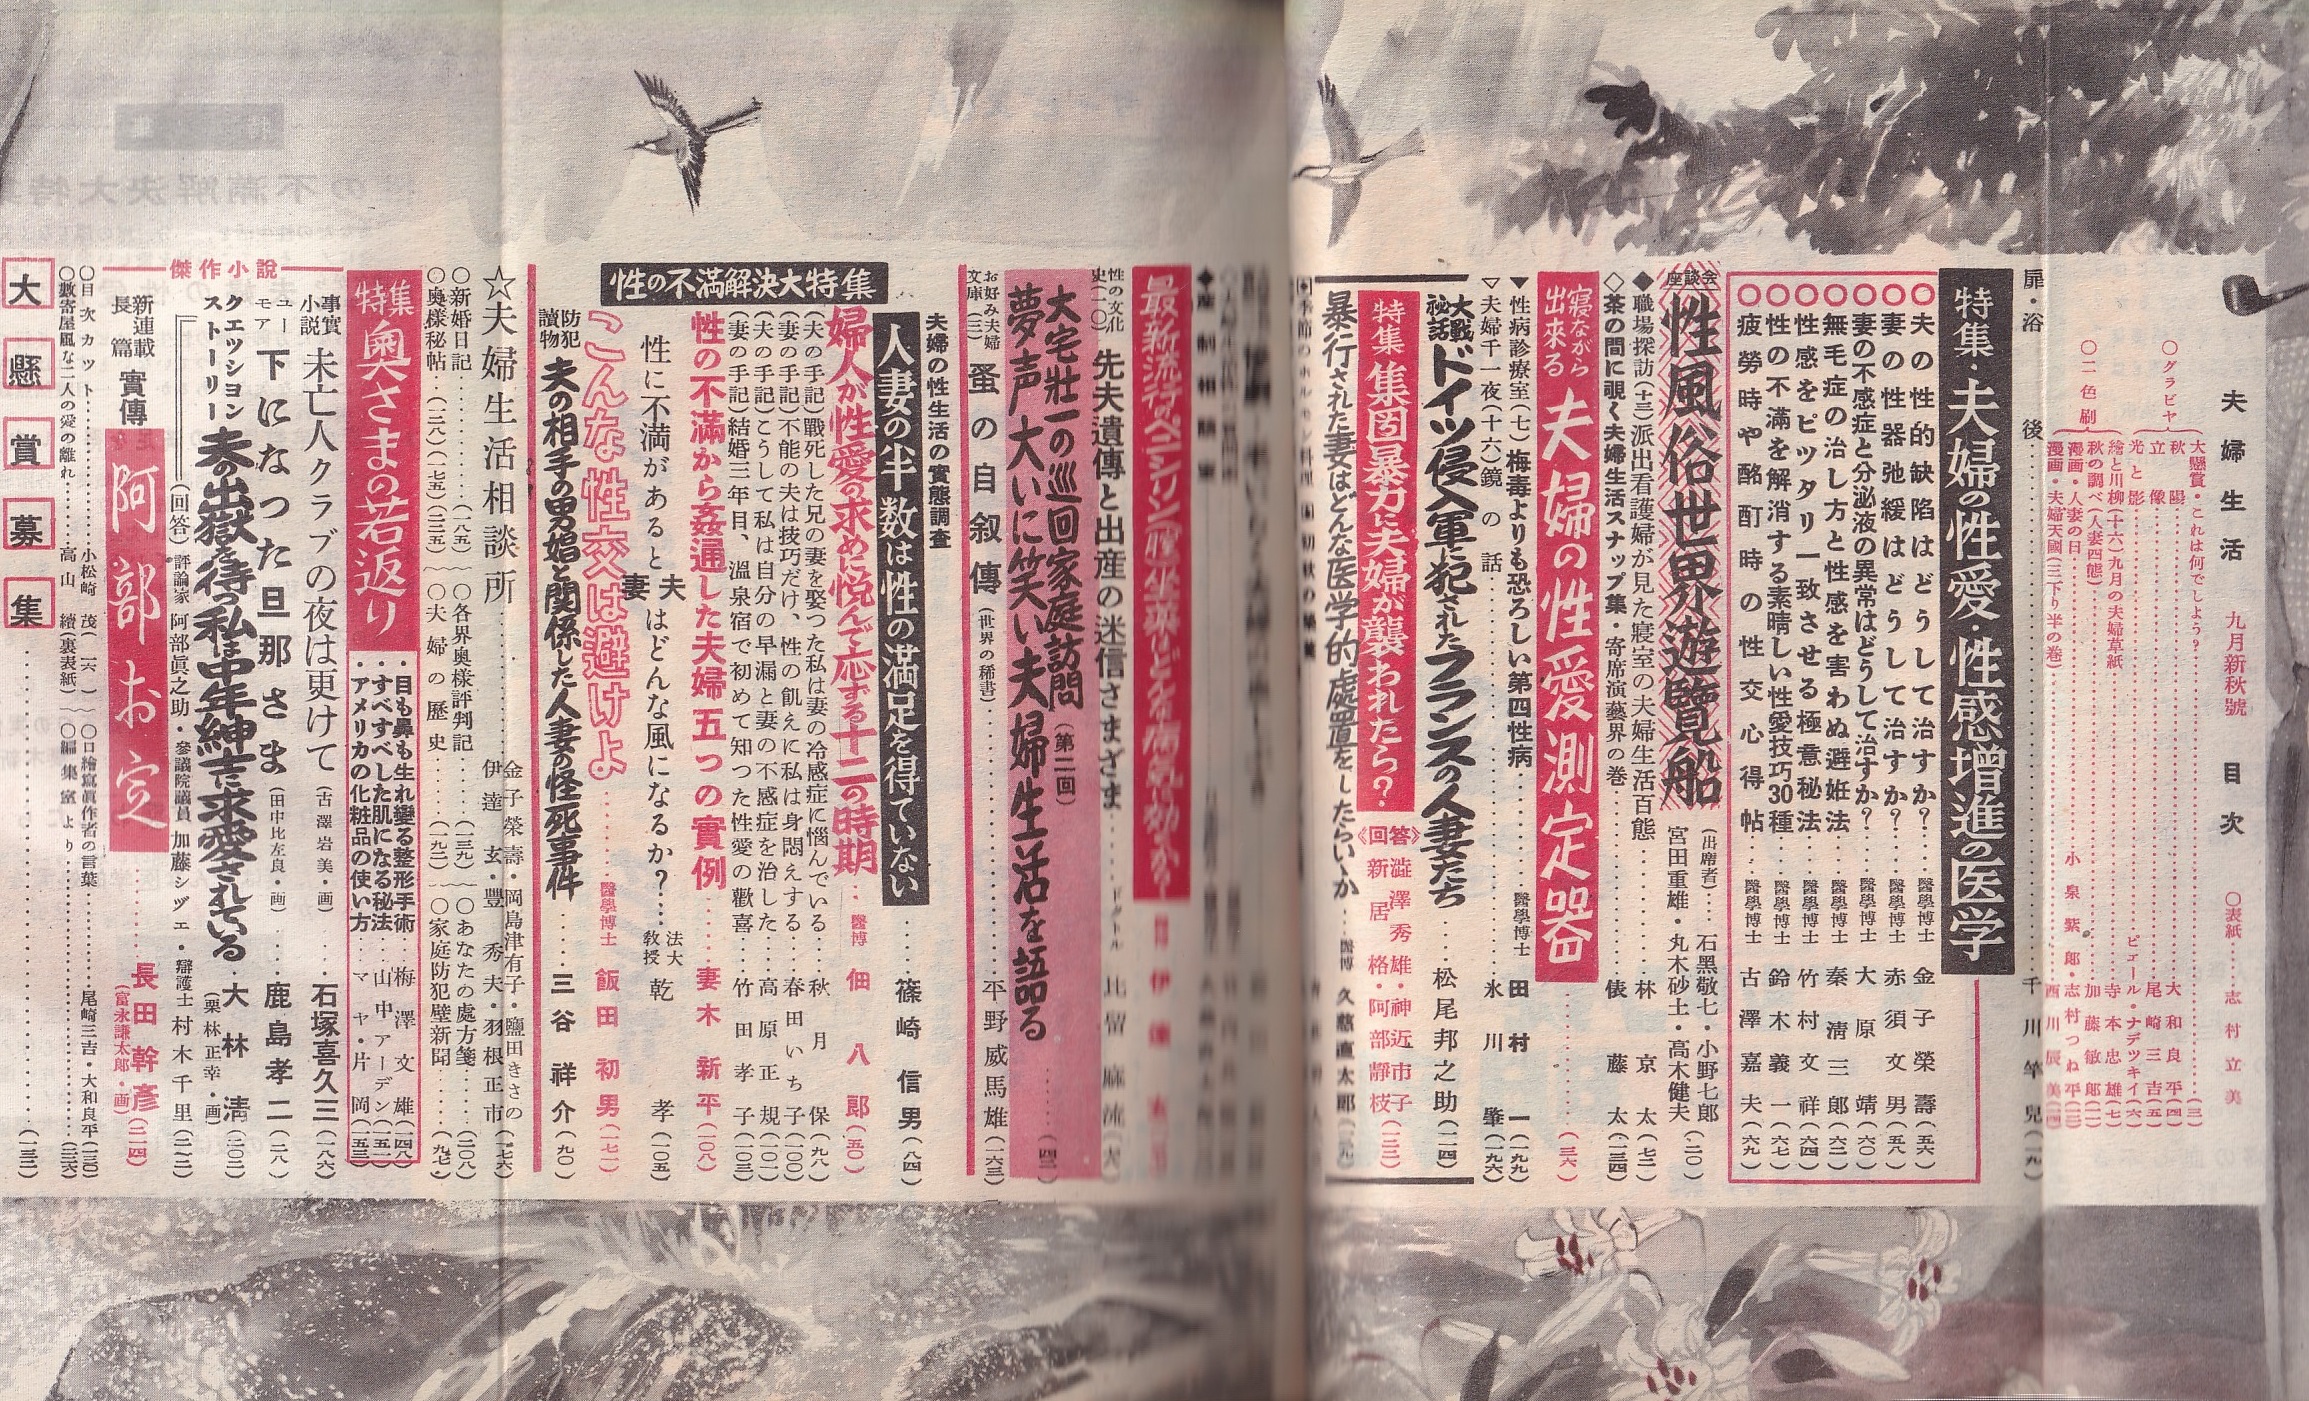 夫婦生活 九月新秋號 目次
○表紙……志村立美
○グラビヤ
大懸賞・これは何でしょう?……(三)
秋陽……大和良平(四)
立像……尾崎三吉(五)
光と影……ピェール・ナデツキイ(六)
繪と川柳(十六)九月の夫婦草紙……寺本忠雄(七)
○二色刷
秋の調べ(人妻四態)……加藤敏郎
漫画・人妻の日……小泉紫郎・志村つね平
漫画・夫婦天國(三下り半の巻)……西川辰美
扉・浴後……千川竿兒(一九)
特集・夫婦の性愛・性感増進の医学
○夫の性的缺陷はどうして治すか?……醫學博士 金子榮壽(五六)
○妻の性器弛緩はどうして治すか?……醫學博士 赤須文男(五八)
○妻の不感症と分泌液の異常はどうして治すか?……醫學博士 大原靖(六〇)
○無毛症の治し方と性感を害わぬ避妊法……醫學博士 秦清三郎(六二)
○性感をピッタリ一致させる極意秘法……醫學博士 竹村文祥(六四)
○性の不滿を解消する素晴しい性愛技巧30種……醫學博士 鈴木義一(六七)
○疲勞時や酩酊時の性交心得帖……醫學博士 古澤嘉夫(六九)
座談会 性風俗世界遊覽船
(出席者)…石黑敬七・小野七郎
宮田重雄・丸木砂土・高木健夫(二〇)
◆職場探訪(十三)派出看護婦が見た寢室の夫婦生活百態……林京太(七二)
◇茶の間に覗く夫婦生活スナップ集・寄席演藝界の巻……俵藤太
寝ながら出来る 夫婦の性愛測定器……(三六)
▼性病診療室(七)梅毒よりも恐ろしい第四性病……醫學博士 田村一(一九九)
▽夫婦千一夜(十六)鏡の話……氷川肇(一九六)
大戰秘話 ドイツ侵入軍に犯されたフランスの人妻たち……松尾邦之助(一一四)
特集 集団暴力に夫婦が襲われたら?
《回答》澁澤秀雄・神近市子
新居格・阿部靜枝(三二)
暴行された妻はどんな医学的處置をしたらいいか……醫博 久慈直太郎
◆産制相談室
最新流行のペニシリン膣坐薬はどんな病気に効くか?……伊達玄
性の文化史(一〇)先夫遺傳と出産の迷信さまざま……ドクトル 比留麻流
大宅壮一の巡回家庭訪問(第二回)
夢声大いに笑い夫婦生活を語る……(四二)
お好み夫婦文庫(三)蚤の自叙傳(世界の稀書)……平野威馬雄(一六三)
性の不滿解決大特集
夫婦の性生活の實態調査
人妻の半数は性の満足を得ていない……篠崎信男(八四)
婦人が性愛の求めに悦んで応する十二の時期……醫博 佃八郎(五〇)
(夫の手記)戰死した兄の妻を娶つた私は妻の冷感症に惱んでいる……秋月保(九八)
(妻の手記)不能の夫は技巧だけ、性の飢えに私は身悶えする……春田いち子(一〇〇)
(夫の手記)こうして私は自分の早漏と妻の不感症を治した……高原正規(一〇一)
(妻の手記)結婚三年目、温泉宿で初めて知つた性愛の歡喜……竹田孝子(一〇三)
性の不滿から姦通した夫婦五つの實例……妻木新平(一〇八)
性に不満があると夫妻はどんな風になるか?……法大教授 乾孝(一〇五)
こんな性交は避けよ……醫學博士 飯田初男(一七一)
防犯讀物 夫の相手の男娼と関係した人妻の怪死事件……三谷祥介(九〇)
☆夫婦生活相談所……金子榮壽・岡島津有子・鹽田きさの
伊達玄・豐秀夫・羽根正市(一七六)
○新婚日記……(一八五)
○各界奥樣評判記……(一三九)
○あなたの処方箋……(二〇八)
○奥樣秘帖……(一三八)(一七五)(二三五)
○夫婦の歴史……(一九二)
○家庭防犯壁新聞……(九七)
特集 奥さまの若返り
・目も鼻も生れ變る整形手術……梅澤文雄(一四八)
・すべすべした肌になる秘法……山中アーデン(一五一)
・アメリカの化粧品の使い方……マヤ・片岡(一五三)
傑作小説
事實小説 未亡人クラブの夜は更けて(古澤岩美・画)……石塚喜久三(一八六)
ユーモア 下になつた旦那さま(田中比左良・画)……鹿島孝二(二八)
クエッションストーリー 夫の出獄を待つ私は中年紳士に求愛されている(栗林正幸・画)・大林淸(二〇二)
(回答)評論家 阿部眞之助・參議院議員 加藤シヅエ・辯護士 村木千里(二一二)
新連載長篇 實傳 阿部お定……長田幹彥(二一四)
(富永謙太郎・画)
○目次カット……小松崎茂(一六)
○口繪寫眞作者の言葉……尾崎三吉・大和良平(一三〇)
○數寄屋風な二人の愛の離れ……高山續(裏表紙)
○編集室より……(二三六)
大懸賞募集……(一三一)